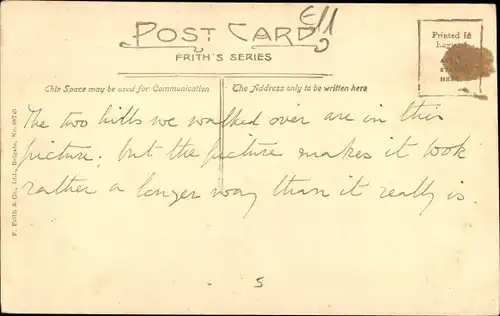 E/1
POST CARD
FRITH'S SERIES
Printed in
England
This Space may be used for Communication
The Address only to be written here
The two hills we walked over are in this
picture; but the picture makes it look
rather a longer way than it really is.
F. Frith & Co., Ltd., Reigate, No.
5